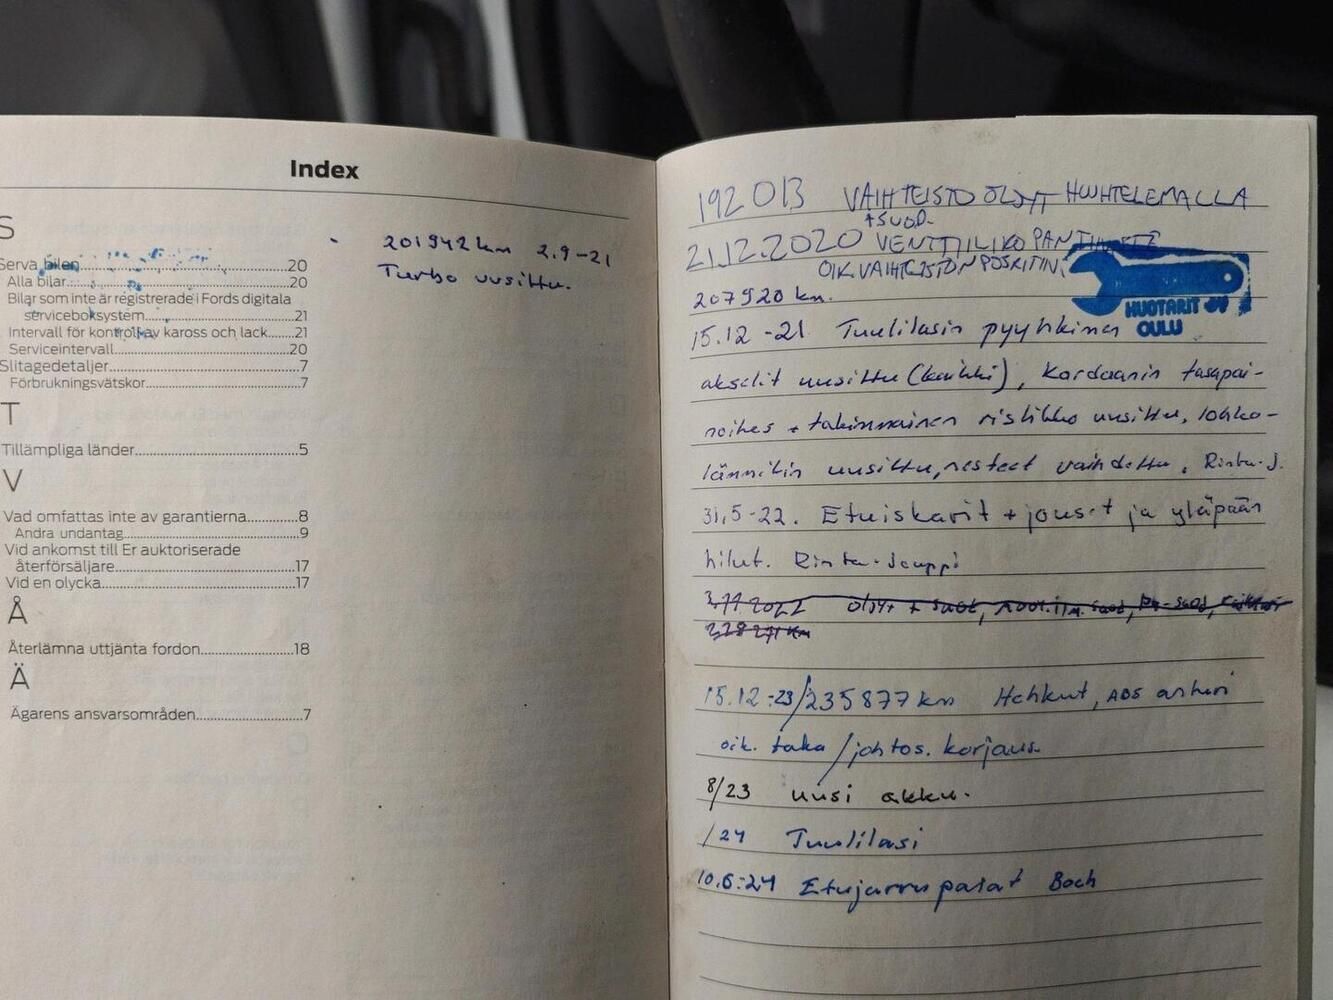 Index
S
Serva bilen 20
Alla bilar 20
Bilar som inte är registrerade i Fords digitala
serviceboksystem 21
Intervall för kontroll av kaross och lack 21
Serviceintervall 20
Slitagedetaljer 7
Förbrukningsvätskor 7
T
Tillämpliga länder 5
V
Vad omfattas inte av garantierna 8
Andra undantag 9
Vid ankomst till Er auktoriserade
återförsäljare 17
Vid en olycka 17
Å
Återlämna uttjänta fordon 18
Ä
Ägarens ansvarsområden 7
201942 km 2.9-21
Turbo uusittu.
192013 VAIHTEISTO ÖLJYT HUUHTELEMALLA
+SUOD.
21.12.2020 VENTTIILIKOPAN TIIVISTE
OIK. VAIHTEISTON
HUOTARIT OY
OULU
207920 km.
15.12-21 Tuulilasin pyyhkimen
akselit uusittu (kaikki), Kardaanin tasapai-
noitus + takimmainen ristikko uusittu, lohko-
lämmitin uusittu, nesteet vaihdettu, Rinta-J.
31.5-22. Etuiskarit + jouset ja yläpään
hilut. Rinta-Jouppi
3.11 2022 öljyt + suod,
228271 km
15.12-23/235877 km Hehkut, ABS anturi
oik. taka/johtos. korjaus
8/23 uusi akku.
/24 Tuulilasi
10.6-24 Etujarrupalat Boch